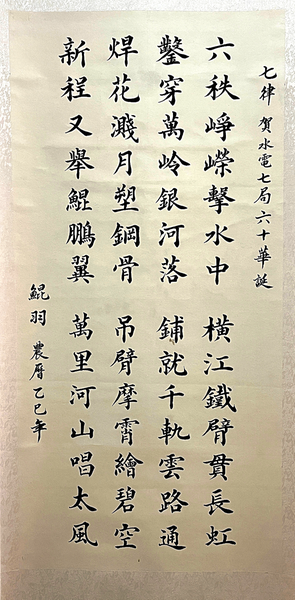 七律 賀水電七局六十華誕
六秩崢嶸擊水中 橫江鐵臂貫長虹
鑿穿萬岭銀河落 鋪就千軌雲路通
焊花濺月塑鋼骨 吊臂摩霄繪碧空
新程又舉鯤鵬翼 萬里河山唱太風
鯤羽 農曆乙巳年